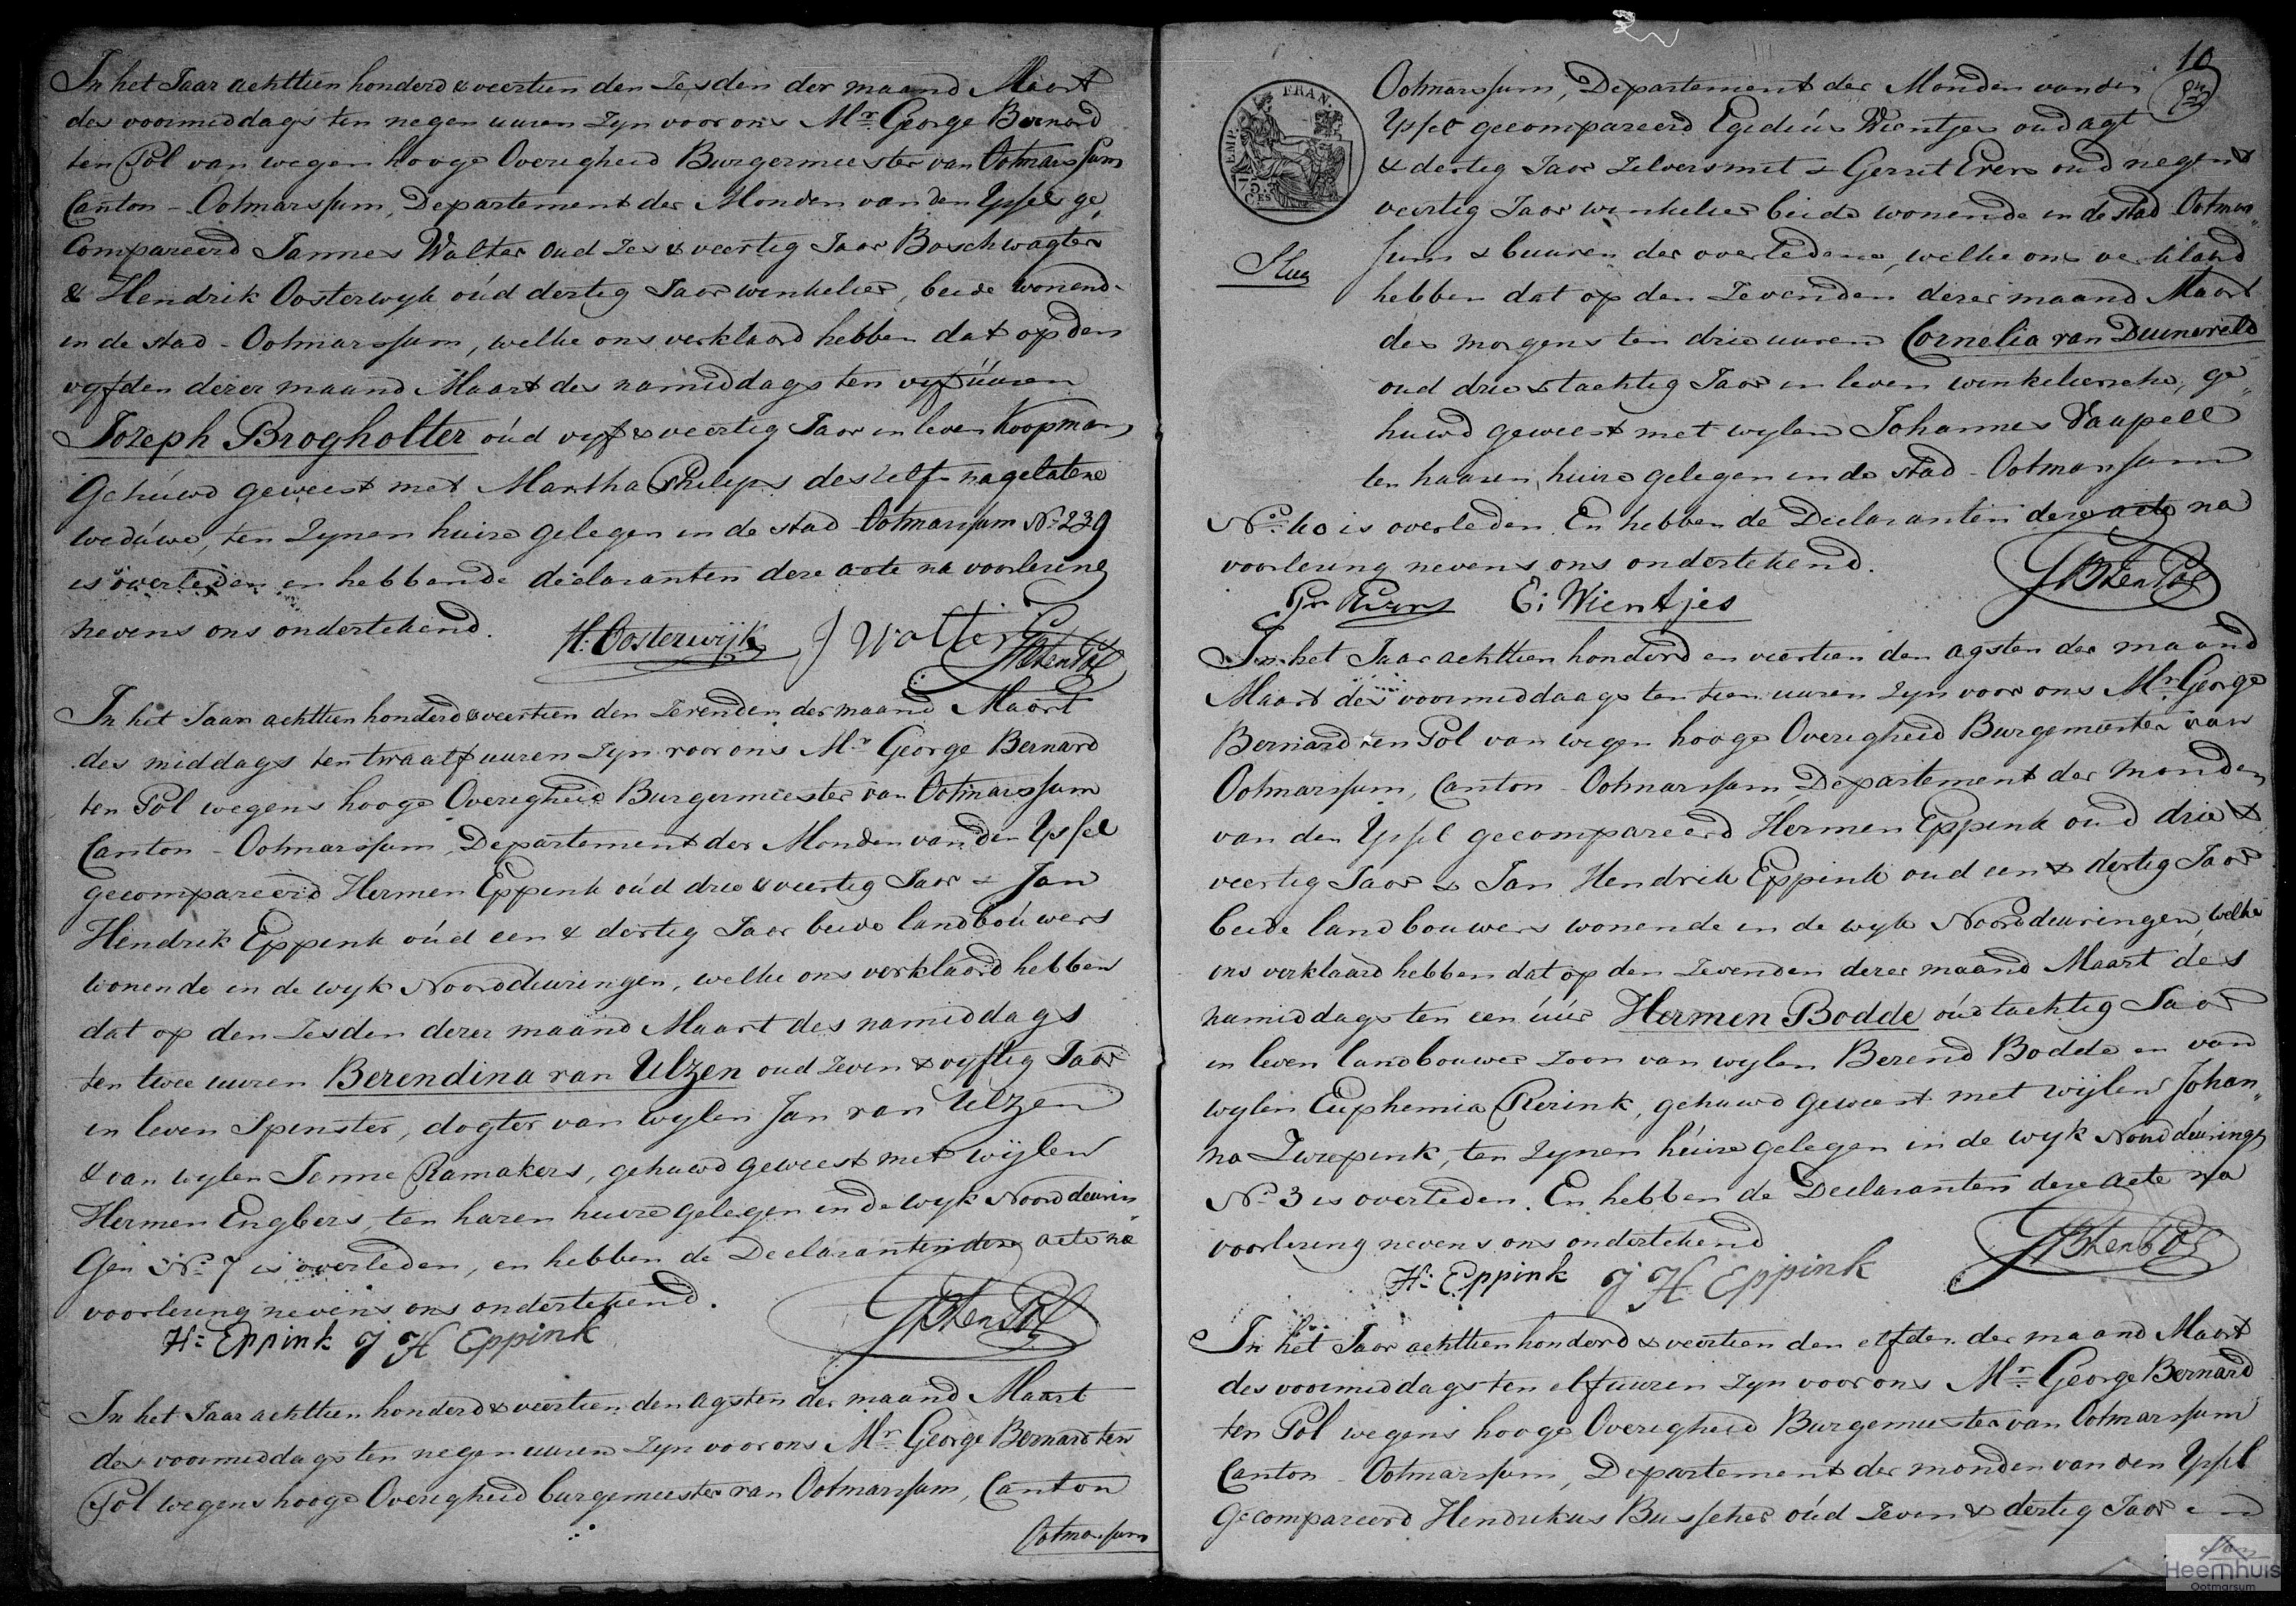 In het Jaar achttien honderd & veertien den Zesden der maand Maart
des voormiddags ten negen uuren Zyn voor ons Mr. George Bernard
ten Pol van wegen hooge Overigheid Burgermeester van Ootmarssum
Canton - Ootmarssum, Departement der Monden van den Yssel ge„
Compareerd Jannes Walter Oud Zes & veertig Jaar Boschwagter
& Hendrik Oosterwyk oud dertig Jaar winkelier, beide wonend
in de stad - Ootmarssum, welke ons verklaard hebben dat op den
vyfden dezer maand Maart des namiddags ten vyf uuren
Jozeph Brogholter oud vyf & veertig Jaar in leven Koopman,
Gehuwd geweest met Martha Philips deszelfs nagelatene
weduwe, ten Zynen huize gelegen in de stad Ootmarssum No. 239
is overleden en hebben de declaranten deze acte na voorlezing
nevens ons ondertekend.
H: Oosterwijk J Walter GBtenPol
In het Jaar achttien honderd & veertien den Zevenden der maand Maart
des middags ten twaalf uuren Zyn voor ons Mr. George Bernard
ten Pol wegens hooge Overigheid Burgermeester van Ootmarssum
Canton - Ootmarssum, Departement der Monden van den Yssel
gecompareerd Hermen Eppink oud drie & veertig Jaar & Jan
Hendrik Eppink oud een & dertig Jaar beide landbouwers
wonende in de wyk Noorddeuringen, welke ons verklaard hebben
dat op den Zesden dezer maand Maart des namiddags
ten twee uuren Berendina van Ulzen oud Zeven & vyftig Jaar
in leven Spinster, dogter van wylen Jan van Ulzen
& van wylen Jenne Ramakers, gehuwd geweest met wijlen
Hermen Engbers, ten haren huize gelegen in de wyk Noorddeurin„
Gen No. 7 is overleden, en hebben de Declaranten deze acte na
voorlezing nevens ons ondertekend.
H: Eppink J H Eppink GBtenPol
In het Jaar achttien honderd & veertien den Agsten der maand Maart
des voormiddags ten negen uuren Zyn voor ons Mr. George Bernard ten
Pol wegens hooge Overigheid burgemeester van Ootmarssum, Canton
Ootmarssum
10
EMP. FRAN.
75.
CES
Ootmarssum, Departement der Monden van den
Yssel gecompareerd Egedius Wientjes oud agt
& dertig Jaar Zilversmit & Gerrit Evers oud negen &
veertig Jaar winkelier beide wonende in de stad Ootmar„
sum & buuren der overledene, welke ons verklaard
hebben dat op den Zevenden dezer maand Maart
des morgens ten drie uuren Cornelia van Duineveld
oud drie & tachtig Jaar in leven winkeliersche, ge„
huwd geweest met wylen Johannes Vaupell
ten haaren huize gelegen in de stad - Ootmarssum
No. 40 is overleden. En hebben de Declaranten deze acte na
voorlezing nevens ons ondertekend.
Gr Evers E: Wientjes GBtenPol
In het Jaar achttien honderd en veertien den agsten der maand
Maart des voormiddaags ten tien uuren Zyn voor ons Mr. George
Bernard ten Pol van wegen hooge Overigheid Burgemeester van
Ootmarssum, Canton - Ootmarssum, Departement der monden
van den Yssel gecompareerd Hermen Eppink oud drie &
veertig Jaar & Jan Hendrik Eppink oud een & dertig Jaar
beide landbouwers wonende in de wyk Noorddeuringen, welke
ons verklaard hebben dat op den Zevenden dezer maand Maart des
namiddags ten een uur Hermen Bodde oud tachtig Jaar
in leven landbouwer Zoon van wylen Berend Bodde en van
wylen Euphemia Rerink, gehuwd geweest met wijlen Johan„
na Zwepink, ten Zynen huize gelegen in de wyk Noorddeuringen
No. 3 is overleden. En hebben de Declaranten deze acte na
voorlezing nevens ons ondertekend
H: Eppink J H Eppink GBtenPol
In het Jaar achttien honderd & veertien den elfden der maand Maart
des voormiddags ten elf uuren Zyn voor ons Mr. George Bernard
ten Pol wegens hooge Overigheid Burgemeester van Ootmarssum
Canton - Ootmarssum, Departement der monden van den Yssel
Gecompareerd Hendrikus Busscher oud Zeven & dertig Jaar en
Heemhuis
Ootmarsum